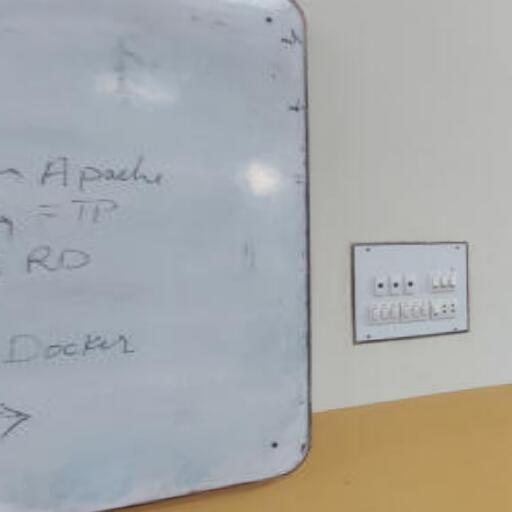 Apache
= TP
RD
Docker